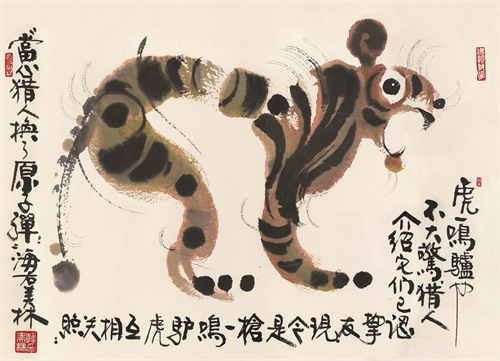 虎一鳴驢也
不大驚猎人
介绍它们已認
摯友現今是一槍鳴驴虎互相关照
當心猎人換了原子彈 海右美林